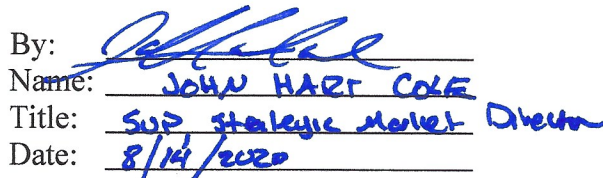 By:
Name: JOHN HART COLE
Title: SVP, Strategic Market Director
Date: 8/14/2020